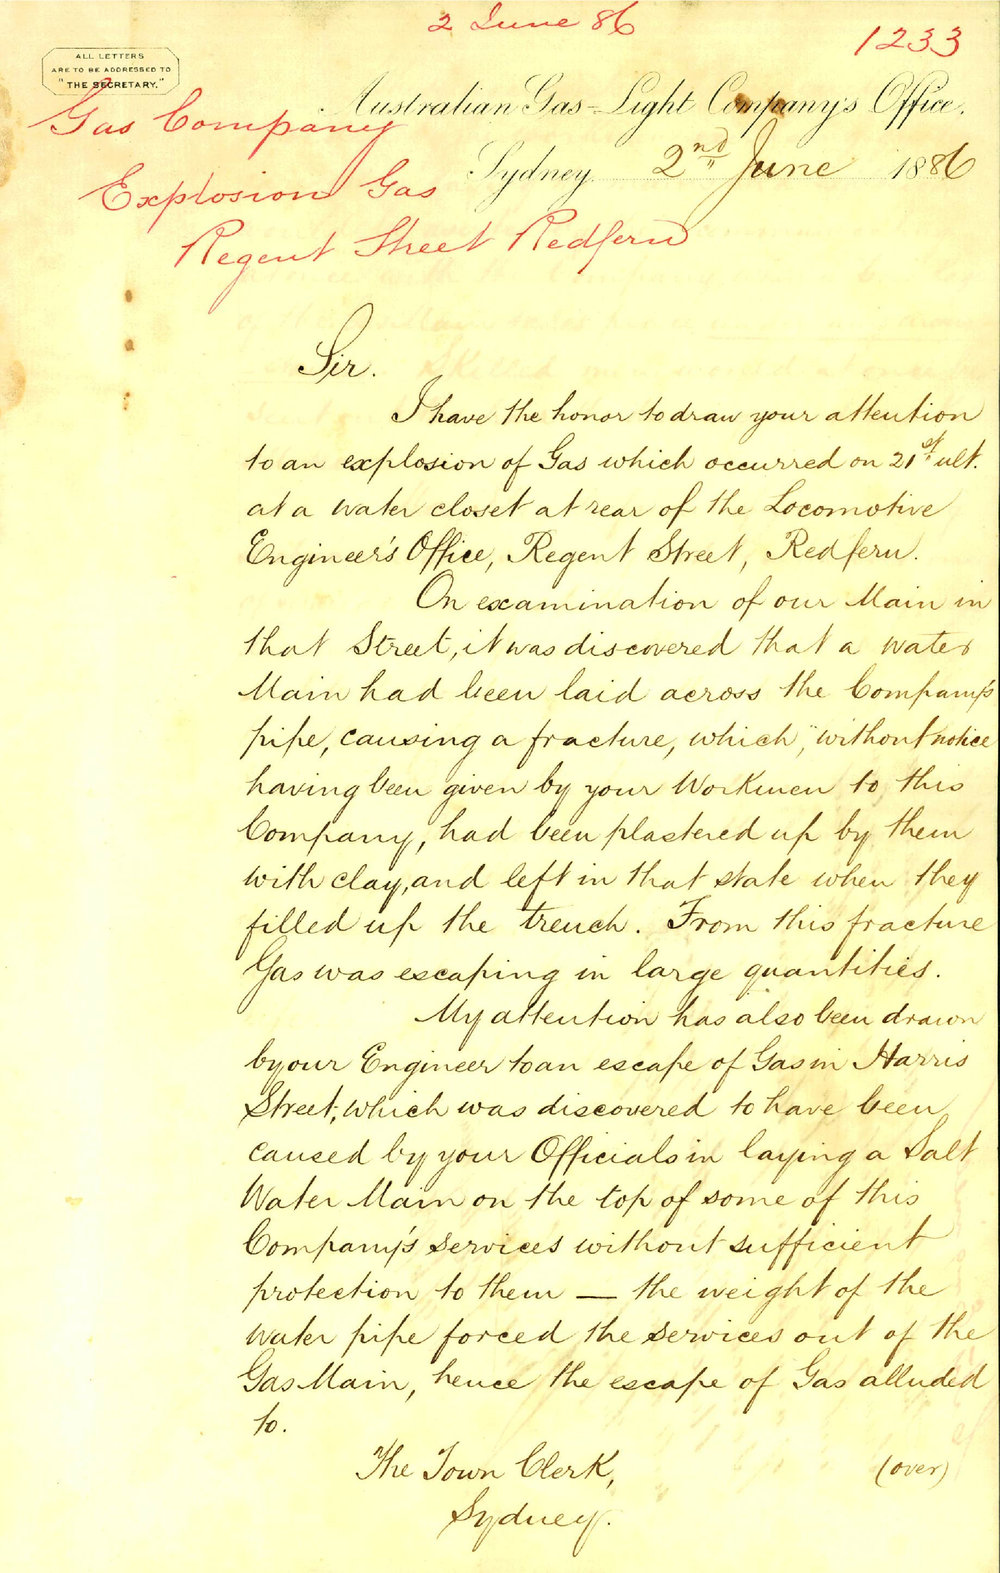 2 June 86
1233
ALL LETTERS
ARE TO BE ADDRESSED TO
"THE SECRETARY."
Australian Gas-Light Company's Office.
Gas Company
Sydney 2nd June 1886
Explosion Gas
Regent Street Redfern
Sir.
I have the honor to draw your attention
to an explosion of Gas which occurred on 21st ult.
at a water closet at rear of the Locomotive
Engineer's Office, Regent Street, Redfern.
On examination of our Main in
that Street, it was discovered that a water
Main had been laid across the Company's
pipe, causing a fracture, which, without notice
having been given by your Workmen to this
Company, had been plastered up by them
with clay, and left in that state when they
filled up the trench. From this fracture
Gas was escaping in large quantities.
My attention has also been drawn
by our Engineer to an escape of Gas in Harris
Street, which was discovered to have been
caused by your Officials in laying a Salt
Water Main on the top of some of this
Company's services without sufficient
protection to them — the weight of the
water pipe forced the services out of the
Gas Main, hence the escape of Gas alluded
to.
The Town Clerk,
(over)
Sydney.